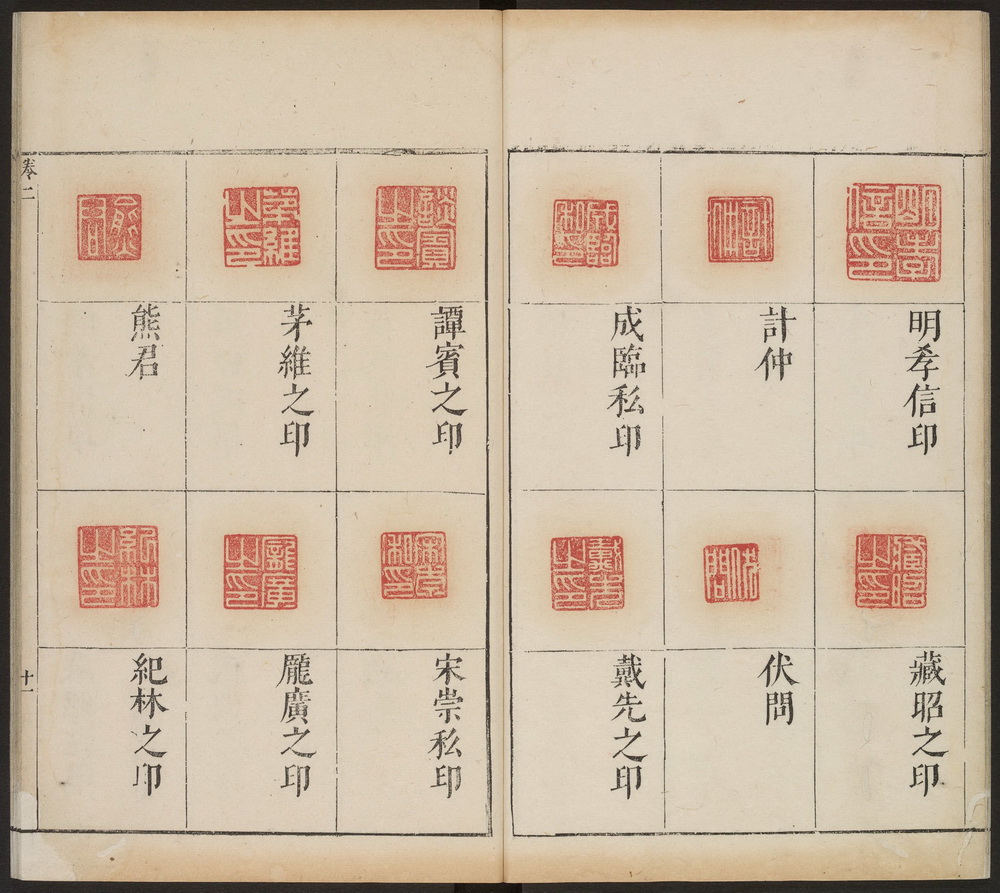 明孝信印
計仲
成臨私印
臧昭之印
伏問
戴先之印
譚賓之印
茅維之印
熊君
宋崇私印
龎廣之印
紀林之印
卷二
十一